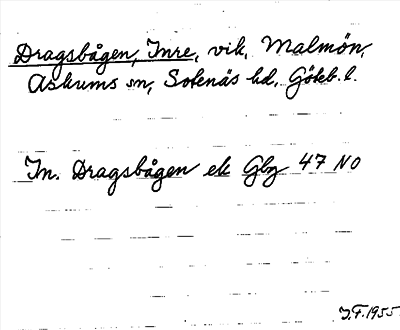 Dragsbågen, Inre, vik, Malmön,
Askums sn, Sotenäs hd, Göteb. l.
In. Dragsbågen ek Gbg 47 NO
J.F. 1955